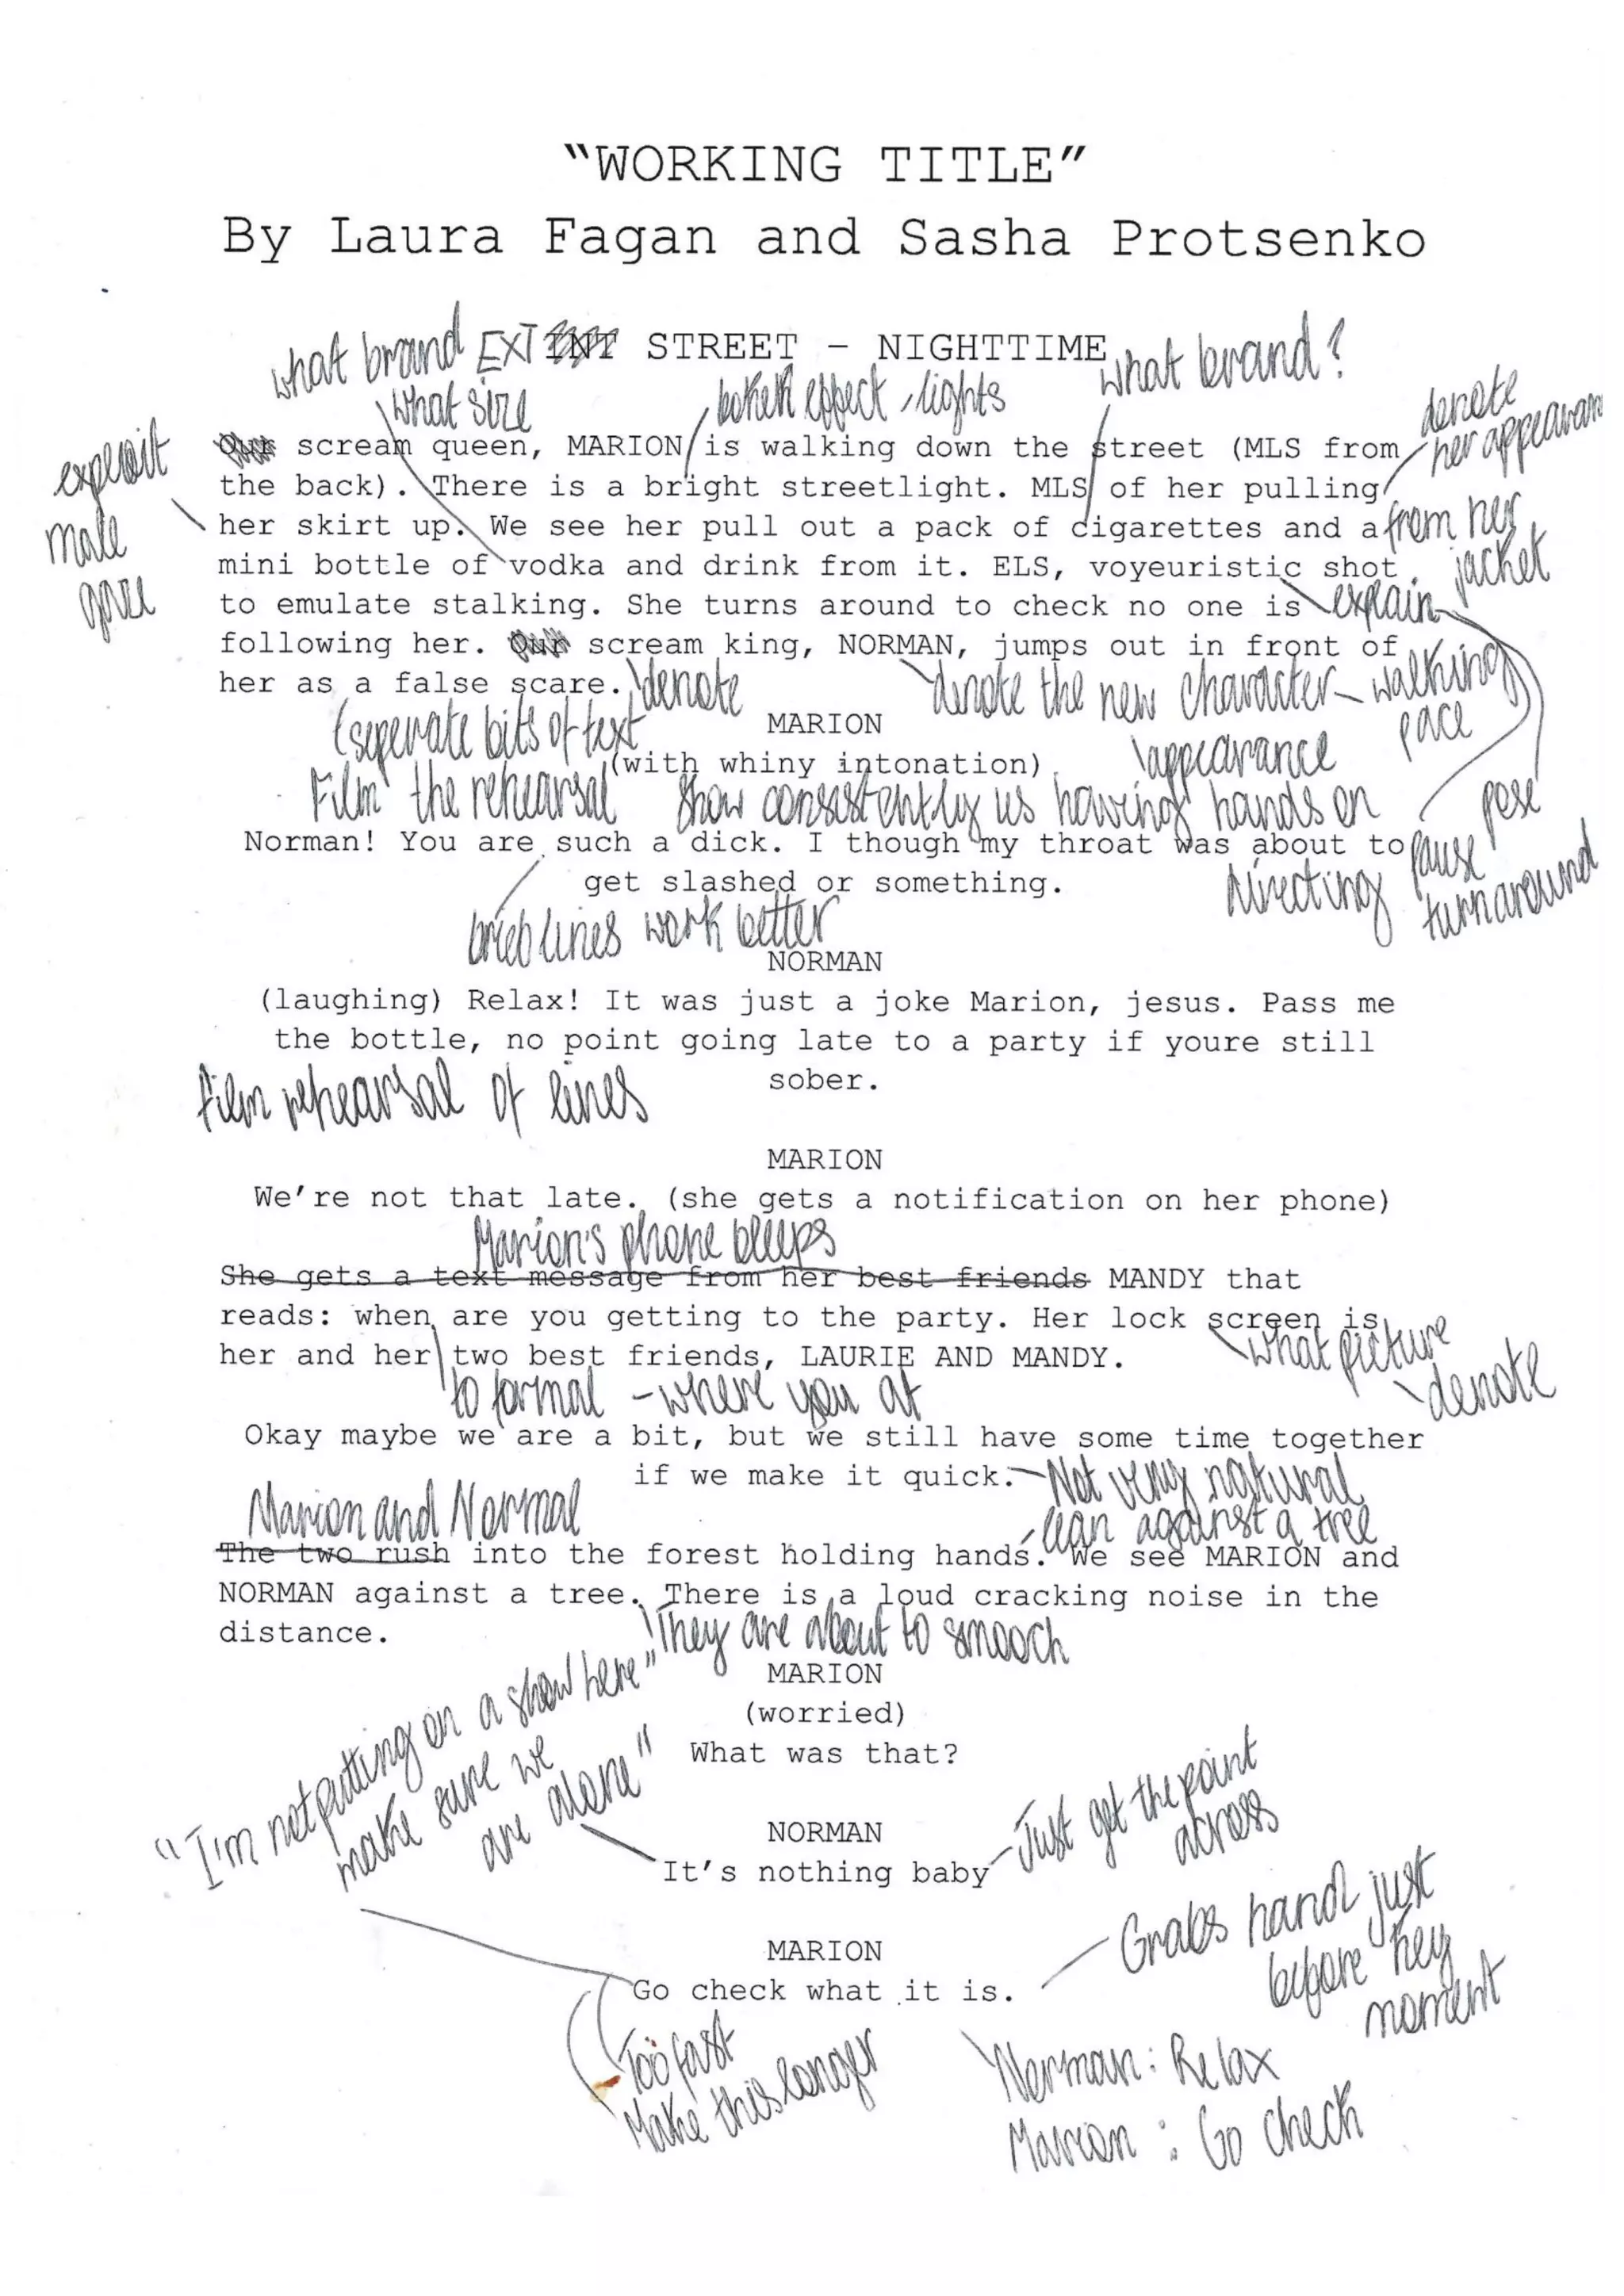 "WORKING TITLE"
By Laura Fagan and Sasha Protsenko
what brand EXT INT STREET - NIGHTTIME what brand?
what size
bokeh effect, lights
denote
her appearance
Our scream queen, MARION is walking down the street (MLS from
the back). There is a bright streetlight. MLS of her pulling
her skirt up. We see her pull out a pack of cigarettes and a from her
jacket
mini bottle of vodka and drink from it. ELS, voyeuristic shot
to emulate stalking. She turns around to check no one is explain
following her. Our scream king, NORMAN, jumps out in front of
her as a false scare. denote
male
denote the new character - walking
pace
appearance
(seperate bits of text
MARION
(with whiny intonation)
Film the rehearsal
Show consistently us having hands on
Directing
pose
pause
turnaround
Norman! You are such a dick. I though my throat was about to
get slashed or something.
brieb lines work better
NORMAN
(laughing) Relax! It was just a joke Marion, jesus. Pass me
the bottle, no point going late to a party if youre still
sober.
film rehearsal of lines
MARION
We're not that late. (she gets a notification on her phone)
Marion's phone bleeps
She gets a text message from her best friends MANDY that
reads: when are you getting to the party. Her lock screen is
her and her two best friends, LAURIE AND MANDY.
what picture
denote
to formal - where you at
Okay maybe we are a bit, but we still have some time together
if we make it quick. - Not very natural
Marion and Normal
- lean against a tree
The two rush into the forest holding hands. We see MARION and
NORMAN against a tree. There is a loud cracking noise in the
distance.
They are about to smooch
MARION
(worried)
What was that?
"I'm not putting on a show here"
make sure we
are alone"
NORMAN
It's nothing baby
Just get the point
across
MARION
Go check what it is.
Grabs hand just
before they
moment
Too fast
Make this longer
Norman: Relax
Marion: Go check